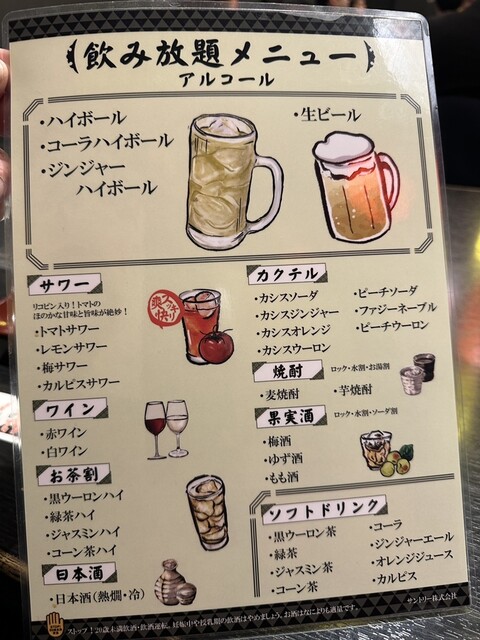 飲み放題メニュー
アルコール
・ハイボール
・コーラハイボール
・ジンジャー
ハイボール
・生ビール
サワー
リコピン入り！トマトの
ほのかな甘味と旨味が絶妙！
・トマトサワー
・レモンサワー
・梅サワー
・カルピスサワー
ワイン
・赤ワイン
・白ワイン
お茶割
・黒ウーロンハイ
・緑茶ハイ
・ジャスミンハイ
・コーン茶ハイ
日本酒
・日本酒(熱燗・冷)
カクテル
・カシスソーダ
・カシスジンジャー
・カシスオレンジ
・カシスウーロン
・ピーチソーダ
・ファジーネーブル
・ピーチウーロン
焼酎 ロック・水割・お湯割
・麦焼酎 ・芋焼酎
果実酒 ロック・水割・ソーダ割
・梅酒
・ゆず酒
・もも酒
ソフトドリンク
・黒ウーロン茶
・緑茶
・ジャスミン茶
・コーン茶
・コーラ
・ジンジャーエール
・オレンジジュース
・カルピス
ストップ！20歳未満飲酒・飲酒運転。妊娠中や授乳期の飲酒はやめましょう。お酒はなによりも適量です。
サントリー株式会社